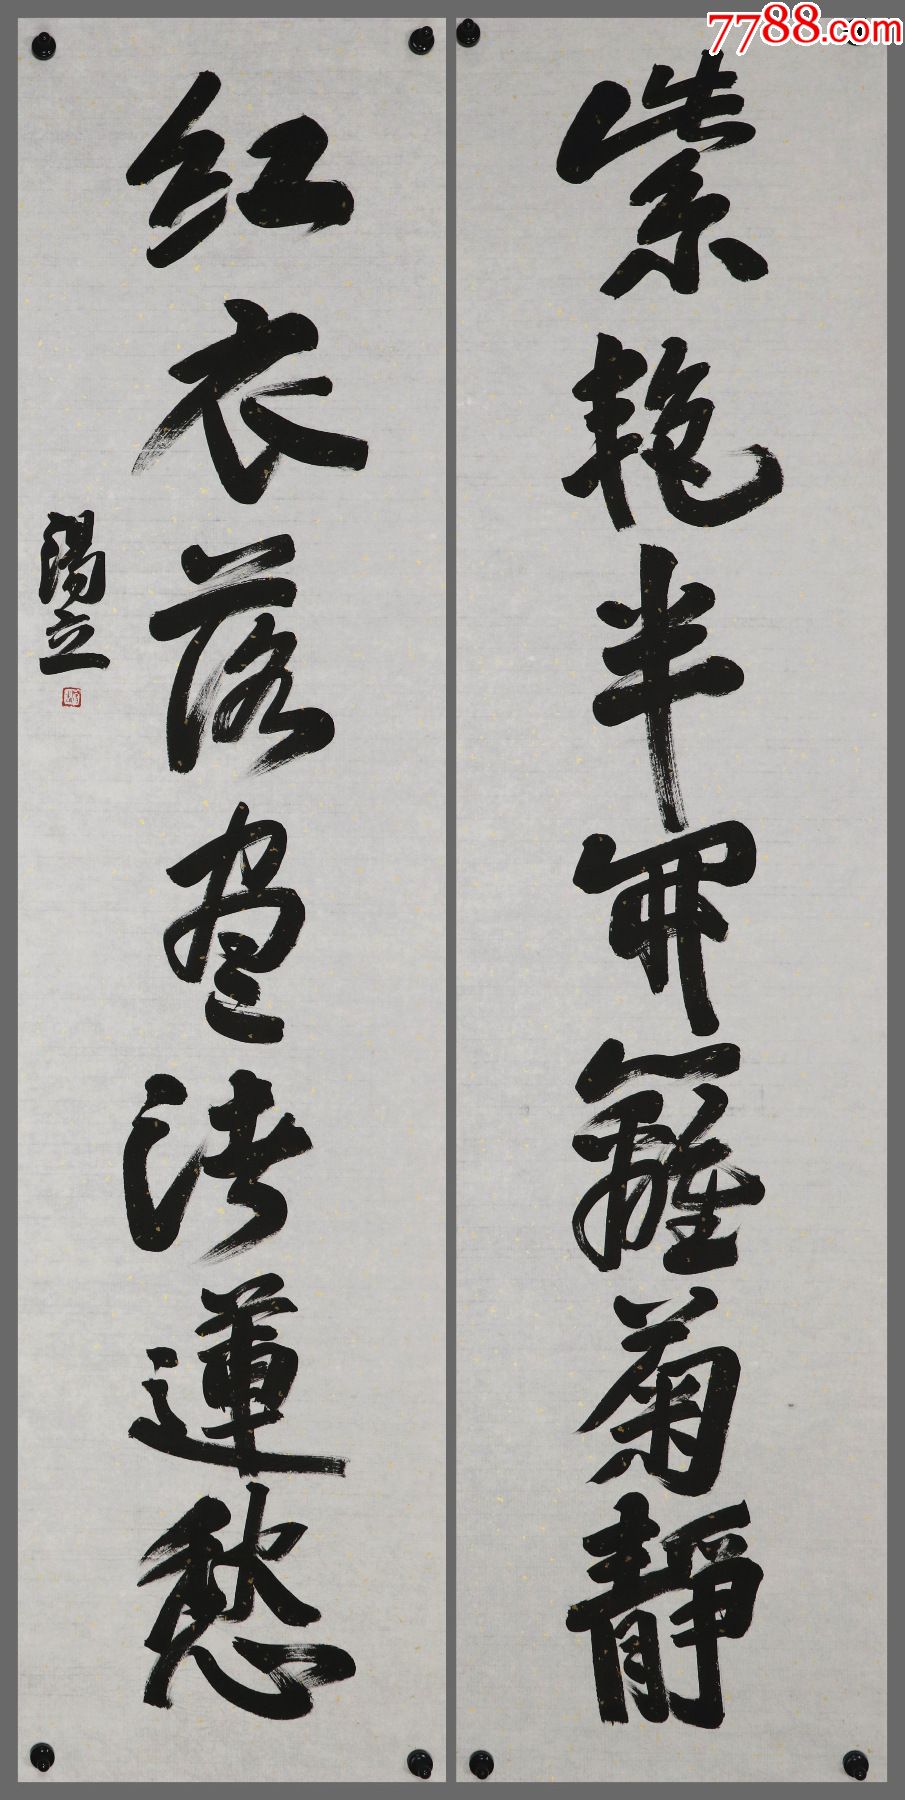 7788.com
紫艳半开篱菊静
红衣落尽渚莲愁
汤立